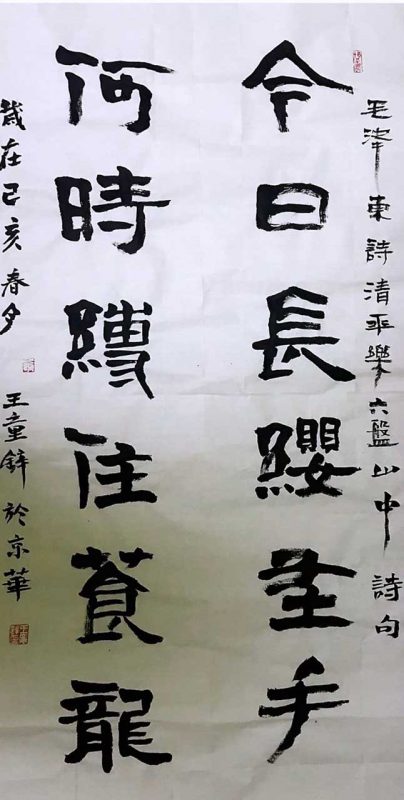 毛泽東詩清平樂六盤山中詩句
今日長纓在手
何時縛住蒼龍
歲在己亥春夕 王童鋅於京華